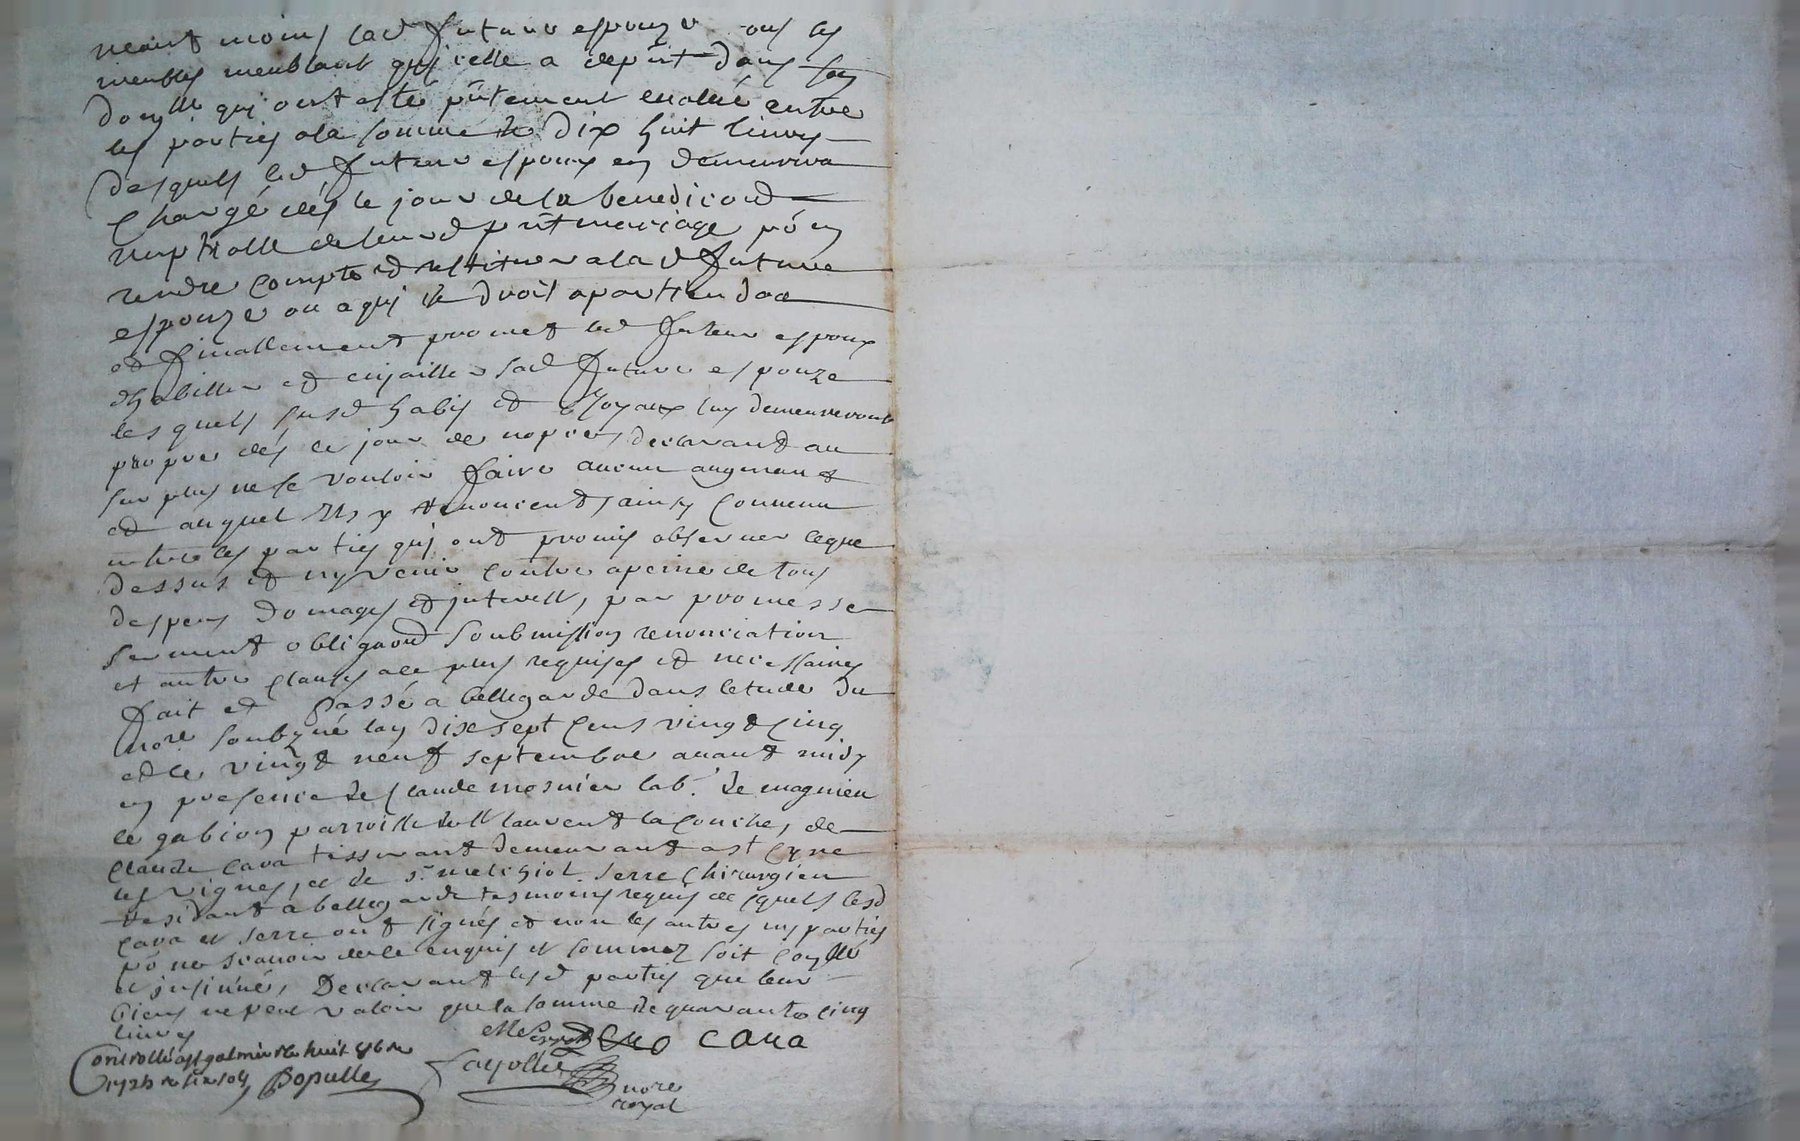 neant moins lad future espouze ous les
meubles meublant qujcelle a depnt dans son
domlle quj ont esté pntement evalué entre
les parties ala somme de dix huit livres
desquels led futeur espoux en demeurera
chargé dés le jour de la benedicond
nuptialle de leurd pnt mariage po en
rendre compte et restituer a lad future
espouze ou a quj de droit apartiendra
et finallement promet led futeur espoux
dhabiller et enjailler sad future espouze
lesquels susd habis et joyaux luy demeureront
propre dés le jour de nopces declarant au
surplus ne se vouloir faire aucun augment
et auquel Ils y Renoncent, ainsy convenu
entre les parties quj ont promis observer ceque
dessus et ny venir contre apeine de tous
despens domages et interets, par promesse
serment obligaond soubmission renonciation
et autre clauses ace plus requises et necessaires
fait et passé a bellegarde dans letude du
nore soubzné lan dixsept cens vingt cinq
et le vingt neuf septembre avant midy
en presence de Claude mosnier lab. de magnieu
le gabion parroisse de st laurent la conche, de
claude cava tisserant demeurant a st cyre
les vignes, et de sr melchiot serre chirurgien
Residant a bellegarde tesmoins requis de cquels lesd
cava et serre ont signés et non les autres ny parties
po ne scavoir de ce enquis et sommez soit conllé
et jnsinué, Declarant lesd parties que leur
biens ne peut valoir que la somme de quarante cinq
livres
Serre cava
Controllé a st galmier le huit 8bre
1725 r six sols Populle
fayolle
nore
royal